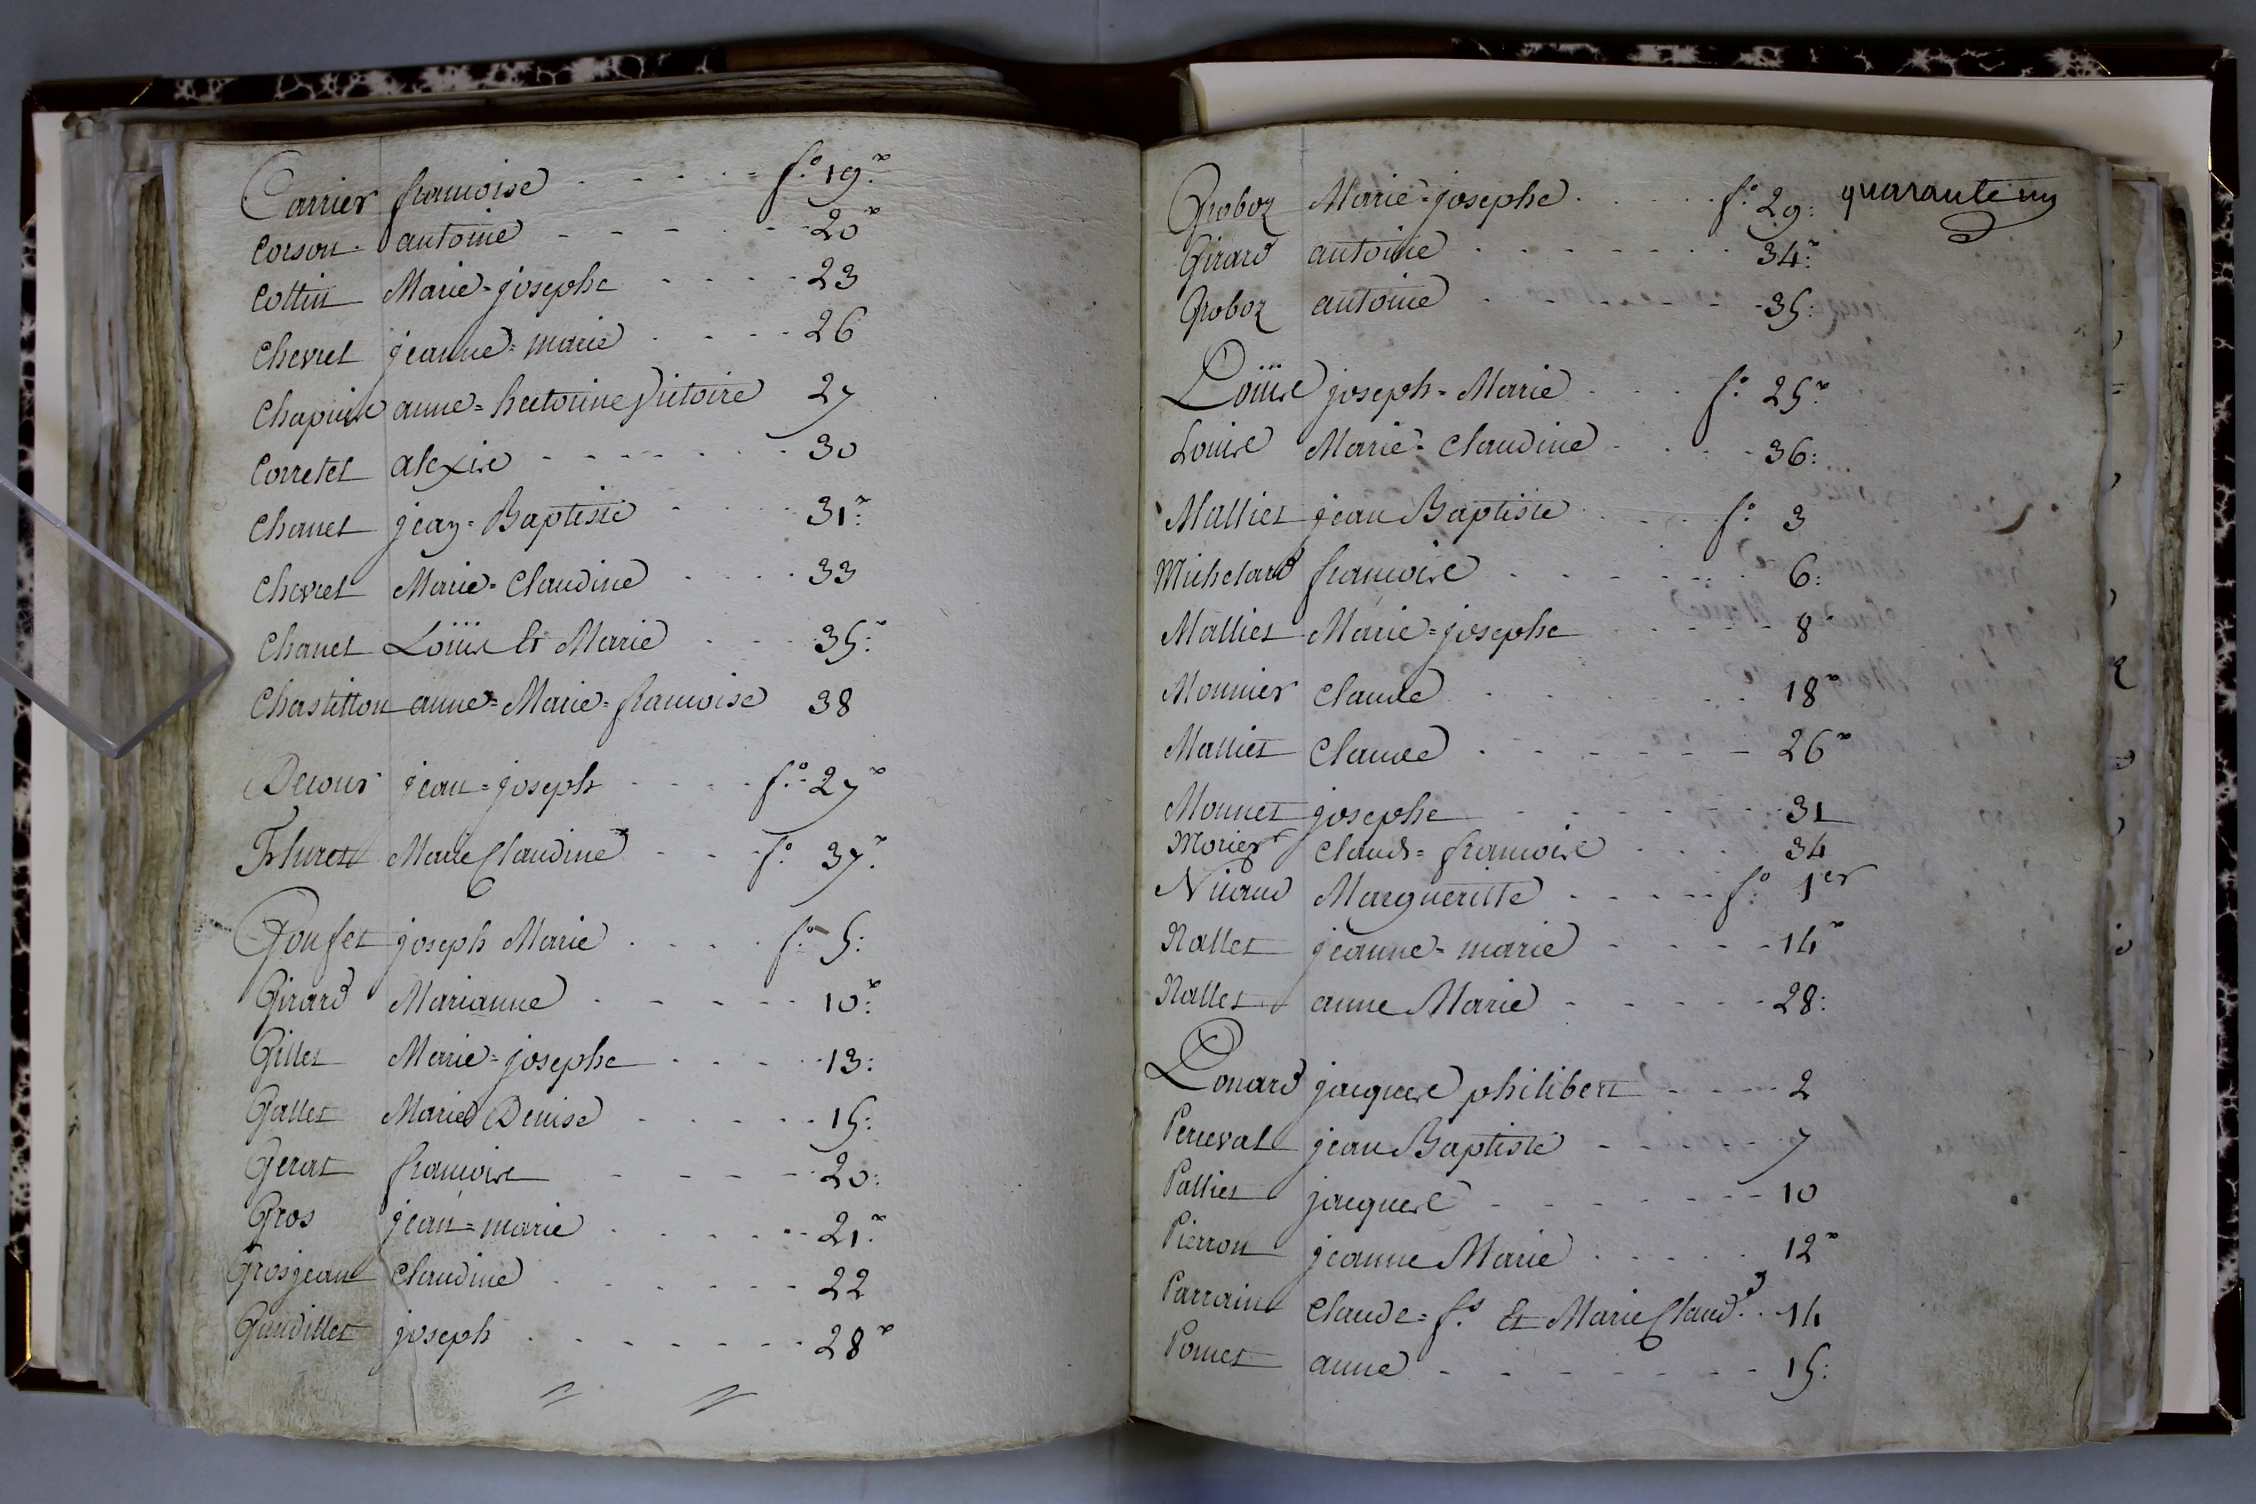 Carrier francoise f.o 19.r
Corson antoine 20r
Cottin Marie=josephe 23
Chevret jeanne=marie 26
Chapuise anne=hectorine Victoire 27
Corretet alexise 30
Chanet jean=Baptiste 31r
Chevret Marie=Claudine 33
Chanet Loüise Et Marie 35.r
Chastillon anne=Marie=francoise 38
Decour jean=joseph f.o 27r
Marie Claudine f.o 37.r
Goufet joseph Marie f.o 5:
Girard Marianne 10.r
Gillet Marie=josephe 13:
Gallet Marie Denise 15:
Gerat francoise 20:
Gros jean=marie 21.r
Grosjean Claudine 22
Gaudillet joseph 28r
Groboz Marie=josephe f.o 29: quarante un
Girard antoine 34.r
Groboz antoine 35:
Loüise joseph=Marie f.o 25r
Louise Marie=Claudine 36:
Malliet jean Baptiste f.o 3
Michelard francoise 6:
Malliet Marie=josephe 8
Monnier Claude 18r
Malliet Claude 26r
Monnet josephe 31
Morier Claude=francoise 34
Nicaud Margueritte f.o 1er
Nallet jeanne=marie 14r
Nallet anne Marie 28:
Ponard jacques philibert 2
Perceval jean Baptiste 7
Palliet jacques 10
Pierron jeanne Marie 12r
Parrain Claude=f.s Et Marie Claud.e 14
Pomet anne 15: